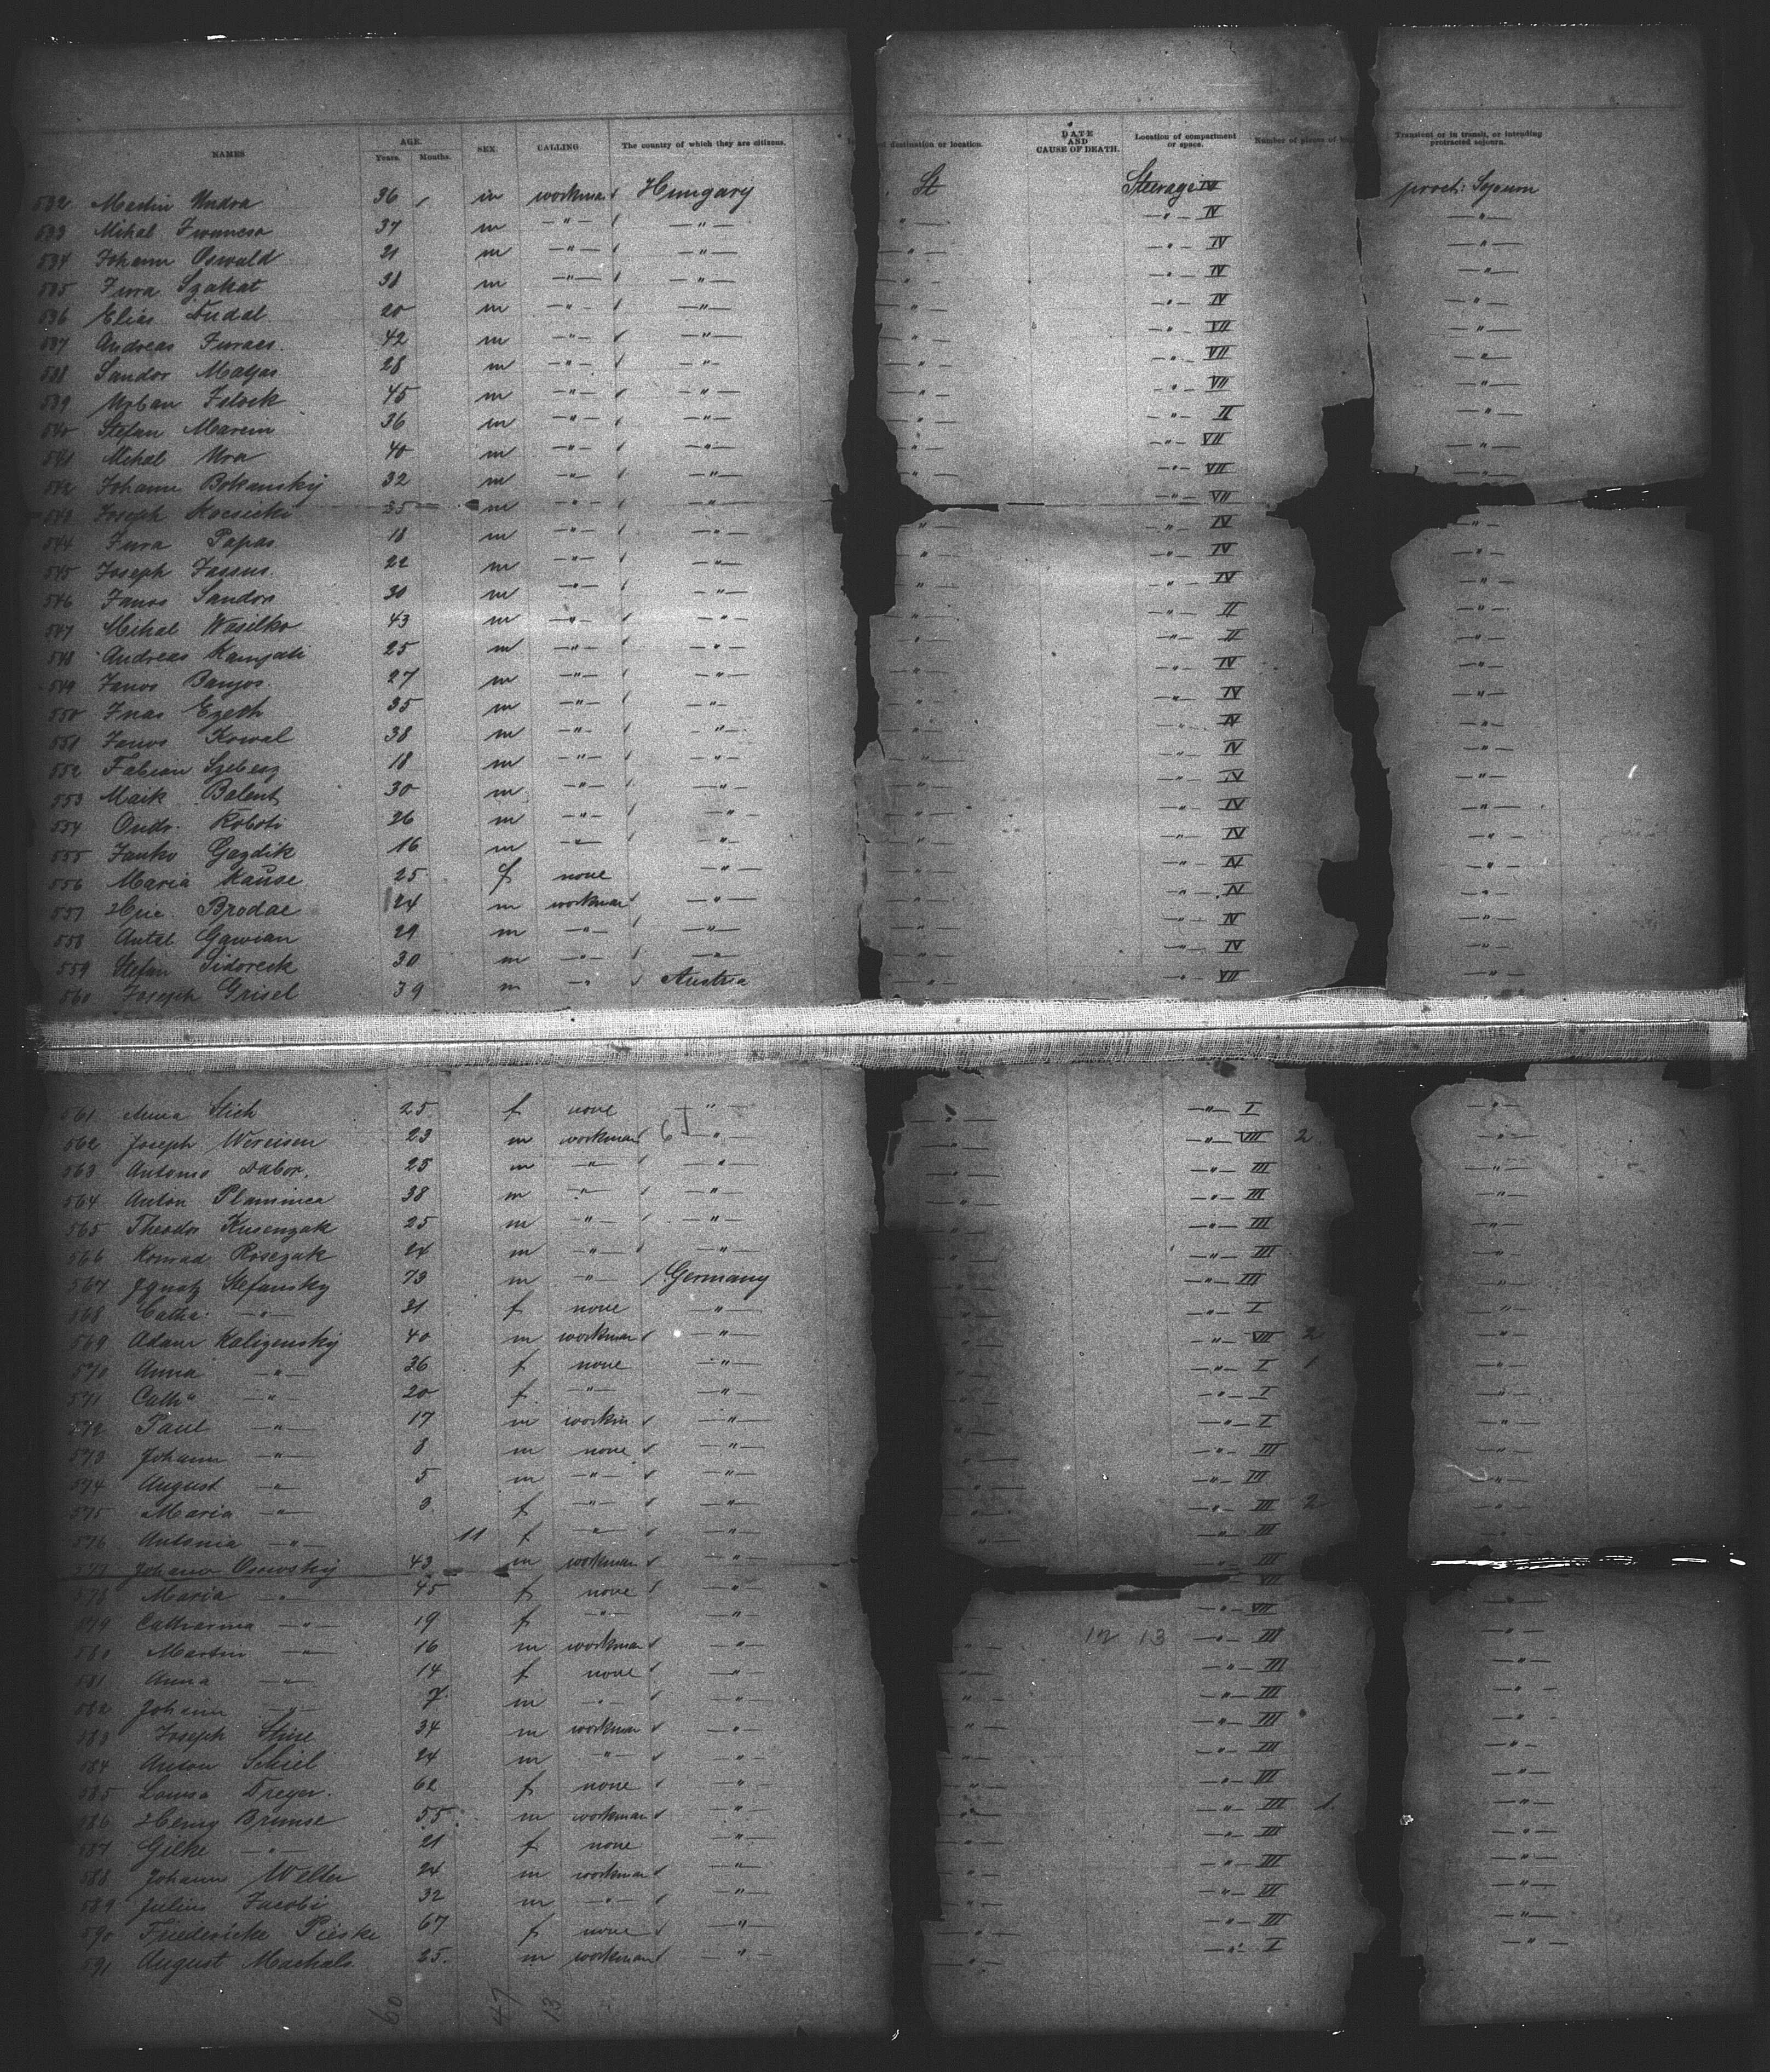 NAMES AGE. Years. Months. SEX. CALLING The country of which they are citizens. destination or location. DATE AND CAUSE OF DEATH. Location of compartment or space. Number of pieces of Transient or in transit, or intending protracted sojourn.
532 Martin Undra 36 m workman Hungary St Steerage IV prost: Sojourn
533 Mihal 37 m — " — — " — — " — — " — IV — " —
534 Johann Oswald 21 m — " — — " — — " — — " — IV — " —
535 Jura Szakat 38 m — " — — " — — " — — " — IV — " —
536 Elias 20 m — " — — " — — " — — " — IV — " —
537 Andreas Juraes 42 m — " — — " — — " — — " — VII — " —
538 Sandor Matyas 28 m — " — — " — — " — — " — VII — " —
539 Urban 45 m — " — — " — — " — — " — VII — " —
540 Stefan Marcin 36 m — " — — " — — " — — " — II — " —
541 Mihal Ura 40 m — " — — " — — " — — " — VII — " —
542 Johann Bokansky 32 m — " — — " — — " — — " — VII — " —
543 Joseph 35 m — " — — " — — " — VII
544 Jura Papas 18 m — " — — " — — " — — " — IV — " —
545 Joseph Jassus 22 m — " — — " — — " — — " — IV — " —
546 Janos Sandor 30 m — " — — " — — " — — " — IV — " —
547 Mihal Wasilko 43 m — " — — " — — " — — " — II — " —
548 Andreas 25 m — " — — " — — " — — " — II — " —
549 Janos Banyos 27 m — " — — " — — " — — " — IV — " —
550 Ezeth 35 m — " — — " — — " — — " — IV — " —
551 Janos Kowal 38 m — " — — " — — " — — " — IV — " —
552 Fabian 18 m — " — — " — — " — — " — IV — " —
553 Maik Balent 30 m — " — — " — — " — — " — IV — " —
554 Andr. Koboti 26 m — " — — " — — " — — " — IV — " —
555 Janko Gazdik 16 m — " — — " — — " — — " — IV — " —
556 Maria Kause 25 f none — " — — " — — " — IV — " —
557 Brodac 24 m workman — " — — " — — " — IV — " —
558 Antal Gawian 29 m — " — — " — — " — — " — IV — " —
559 Stefan Sidoreck 30 m — " — — " — — " — — " — IV — " —
560 Joseph Grisel 39 m — " — Austria — " — — " — VII — " —
561 Anna Stich 25 f none — " — — " — — " — I — " —
562 Joseph Wereisen 23 m workman — " — — " — — " — VIII 2 — " —
563 Antonio Dabor. 25 m — " — — " — — " — — " — III — " —
564 Anton Plaminca 38 m — " — — " — — " — — " — III — " —
565 Theodor Kusenzak 25 m — " — — " — — " — — " — III — " —
566 Konrad Rosczak 24 m — " — — " — — " — — " — III — " —
567 Ignatz Stefansky 73 m — " — Germany — " — — " — III — " —
568 Catha: — " — 21 f none — " — — " — — " — I — " —
569 Adam Kalizensky 40 m workman — " — — " — — " — VIII 2 — " —
570 Anna — " — 36 f none — " — — " — — " — I 1 — " —
571 Catha — " — 20 f — " — — " — — " — — " — I — " —
572 Paul — " — 17 m workm — " — — " — — " — I — " —
573 Johann — " — 8 m none — " — — " — — " — III — " —
574 August — " — 5 m — " — — " — — " — — " — III — " —
575 Maria — " — 3 f — " — — " — — " — — " — III 2 — " —
576 Antonia — " — 11 f — " — — " — — " — — " — III — " —
577 Johann Osowsky 43 m workman — " — — " — III
578 Maria — " — 45 f none — " — VII — " —
579 Catharina — " — 19 f — " — — " — — " — VIII — " —
580 Martin — " — 16 m workman — " — — " — 12 13 — " — III — " —
581 Anna — " — 14 f none — " — — " — — " — III — " —
582 Johann — " — 7 m — " — — " — — " — — " — III — " —
583 Joseph Stine 34 m workman — " — — " — — " — III — " —
584 Anton Schiel 24 m — " — — " — — " — — " — III — " —
585 Louisa Dreyer. 62 f none — " — — " — — " — VII — " —
586 Henry Brunse 55 m workman — " — — " — — " — III 1 — " —
587 Gelke — " — 21 f none — " — — " — — " — III — " —
588 Johann Welter 24 m workman — " — — " — — " — III — " —
589 Julius Jacobi 32 m — " — — " — — " — — " — VI — " —
590 Friedericke Pieske 67 f none — " — — " — — " — III — " —
591 August Maskals 25. m workman — " — — " — — " — I — " —
60 47 13